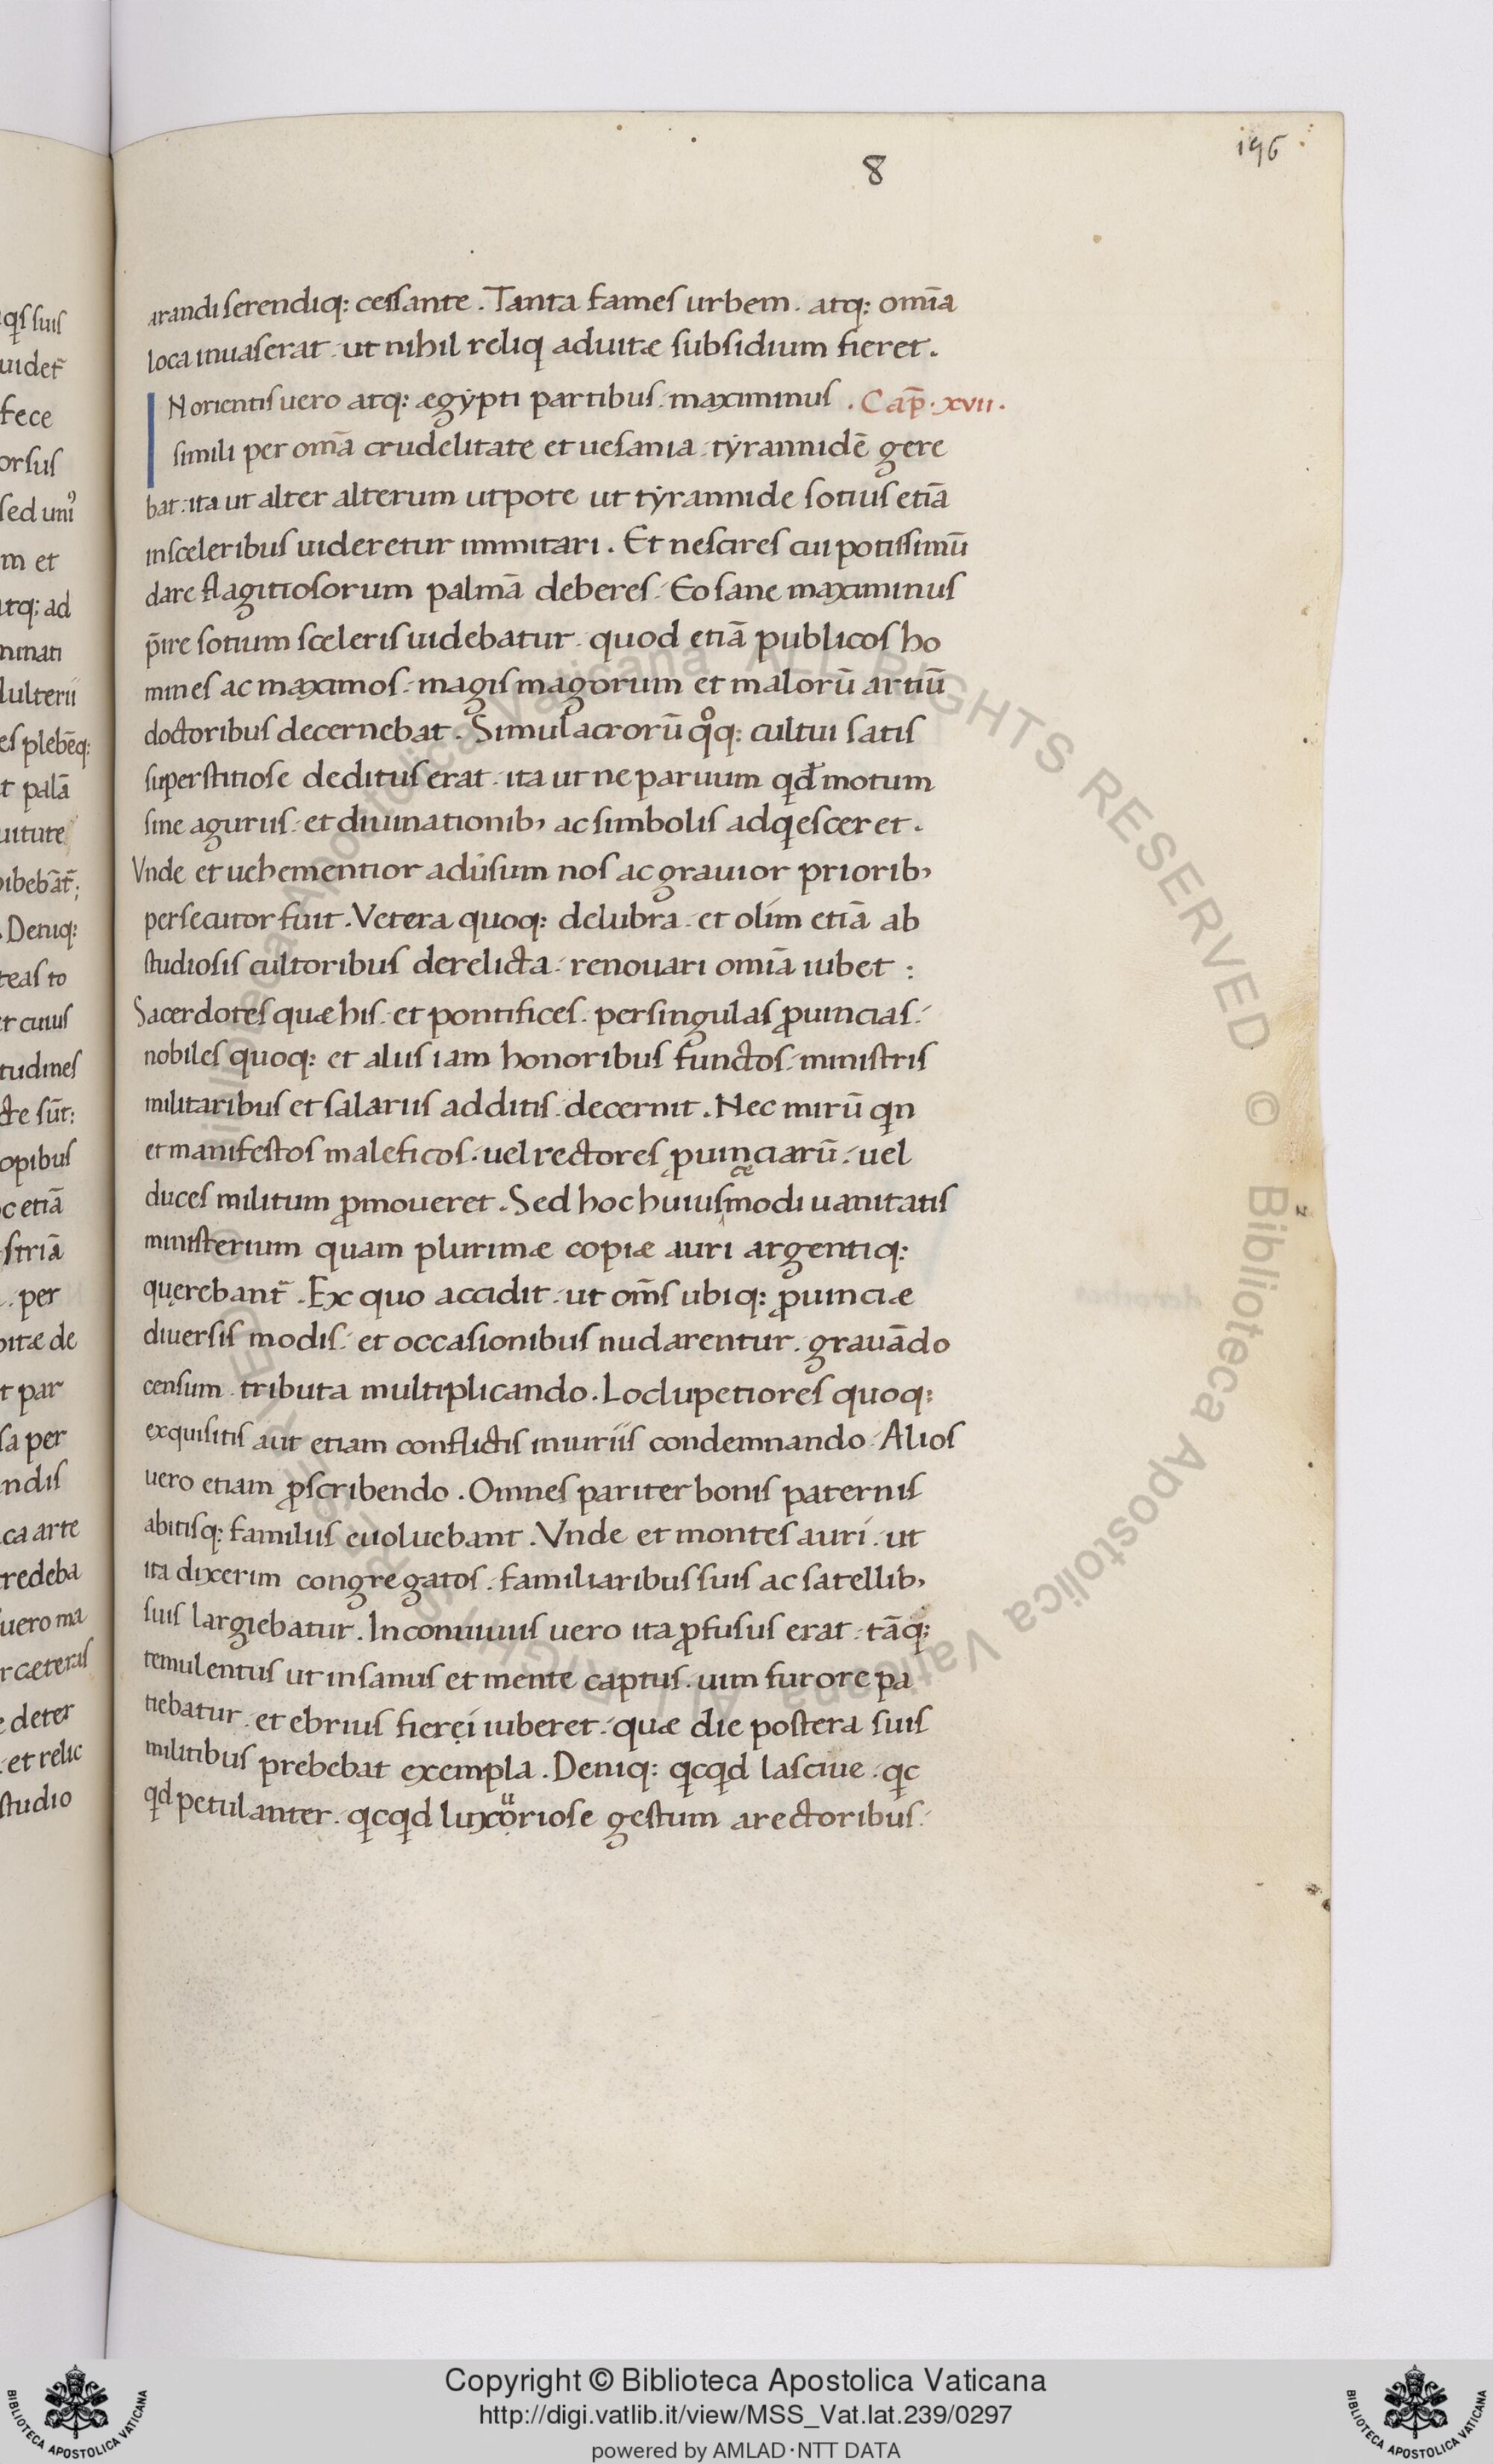 196
8
arandi serendiq: cessante. Tanta fames urbem. atq: omīa
loca inuaserat. ut nihil reliq aduitæ subsidium fieret.
IN orientis uero atq: ægypti partibus. maximinus . Cap̄. xvii.
simili per omīa crudelitate et uesania. tyrannidē gere
bat. ita ut alter alterum utpote ut tyrannide sotius etiā
insceleribus uideretur immitari. Et nescires cui potissimū
dare flagitiosorum palmā deberes. Eo sane maximinus
p̄ire sotium sceleris uidebatur. quod etiā publicos ho
mines ac maximos. magis magorum et malorū artiū
doctoribus decernebat. Simulacrorū qͦq: cultui satis
superstitiose deditus erat. ita ut ne paruum qd motum
sine aguriis. et diuinationib, ac simbolis adqesceret.
Vnde et uehementior adūsum nos ac grauior priorib,
persecutor fuit. Vetera quoq: delubra. et olim etiā ab
studiosis cultoribus derelicta. renouari omīa iubet :
Sacerdotes quæ his. et pontifices. per singulas ꝓuincias.
nobiles quoq: et aliis iam honoribus functos. ministris
militaribus et salariis additis. decernit. Nec mirū qn
et manifestos maleficos. uel rectores ꝓuinciarū. uel
duces militum ꝓmoueret. Sed hoc huiuscęmodi uanitatis
ministerium quam plurimæ copiæ auri argentiq:
quęrebant̄. Ex quo accidit. ut om̄s ubiq: ꝓuinciæ
diuersis modis. et occasionibus nudarentur. grauādo
censum. tributa multiplicando. Loclupetiores quoq:
exquisitis aut etiam conflictis iniuriis condemnando. Alios
uero etiam ꝓscribendo. Omnes pariter bonis paternis
abitisq: familiis euoluebant. Vnde et montes auri. ut
ita dixerim congregatos. familiaribus suis ac satellib,
suis largiebatur. In conuiuiis uero ita ꝓfusus erat. tāq:
temulentus ut insanus et mente captus. uim furore pa
tiebatur. et ebrius fierẹi iuberet. quæ die postera suis
militibus prebebat exempla. Deniq: qcqd lasciue. qc
qd petulanter. qcqd luxọuriose gestum arectoribus.
qs suis
uidet̄
fece
orsus
sed uniꝰ
m et
atq: ad
minati
dulterii
es plebēq:
t palā
uitute
bibebāt̄;
. Deniq:
teas to
et cuius
tudines
cte sūt:
opibus
c etiā
striā
. per
itæ de
t par
sa per
ndis
ca arte
redeba
uero ma
r cæteras
e deter
. et relic
studio
© Biblioteca Apostolica Vaticana ALL RIGHTS RESERVED © Biblioteca Apostolica Vaticana ALL RIGHTS RESERVED
Copyright © Biblioteca Apostolica Vaticana
http://digi.vatlib.it/view/MSS_Vat.lat.239/0297
powered by AMLAD·NTT DATA
BIBLIOTECA APOSTOLICA VATICANA
BIBLIOTECA APOSTOLICA VATICANA